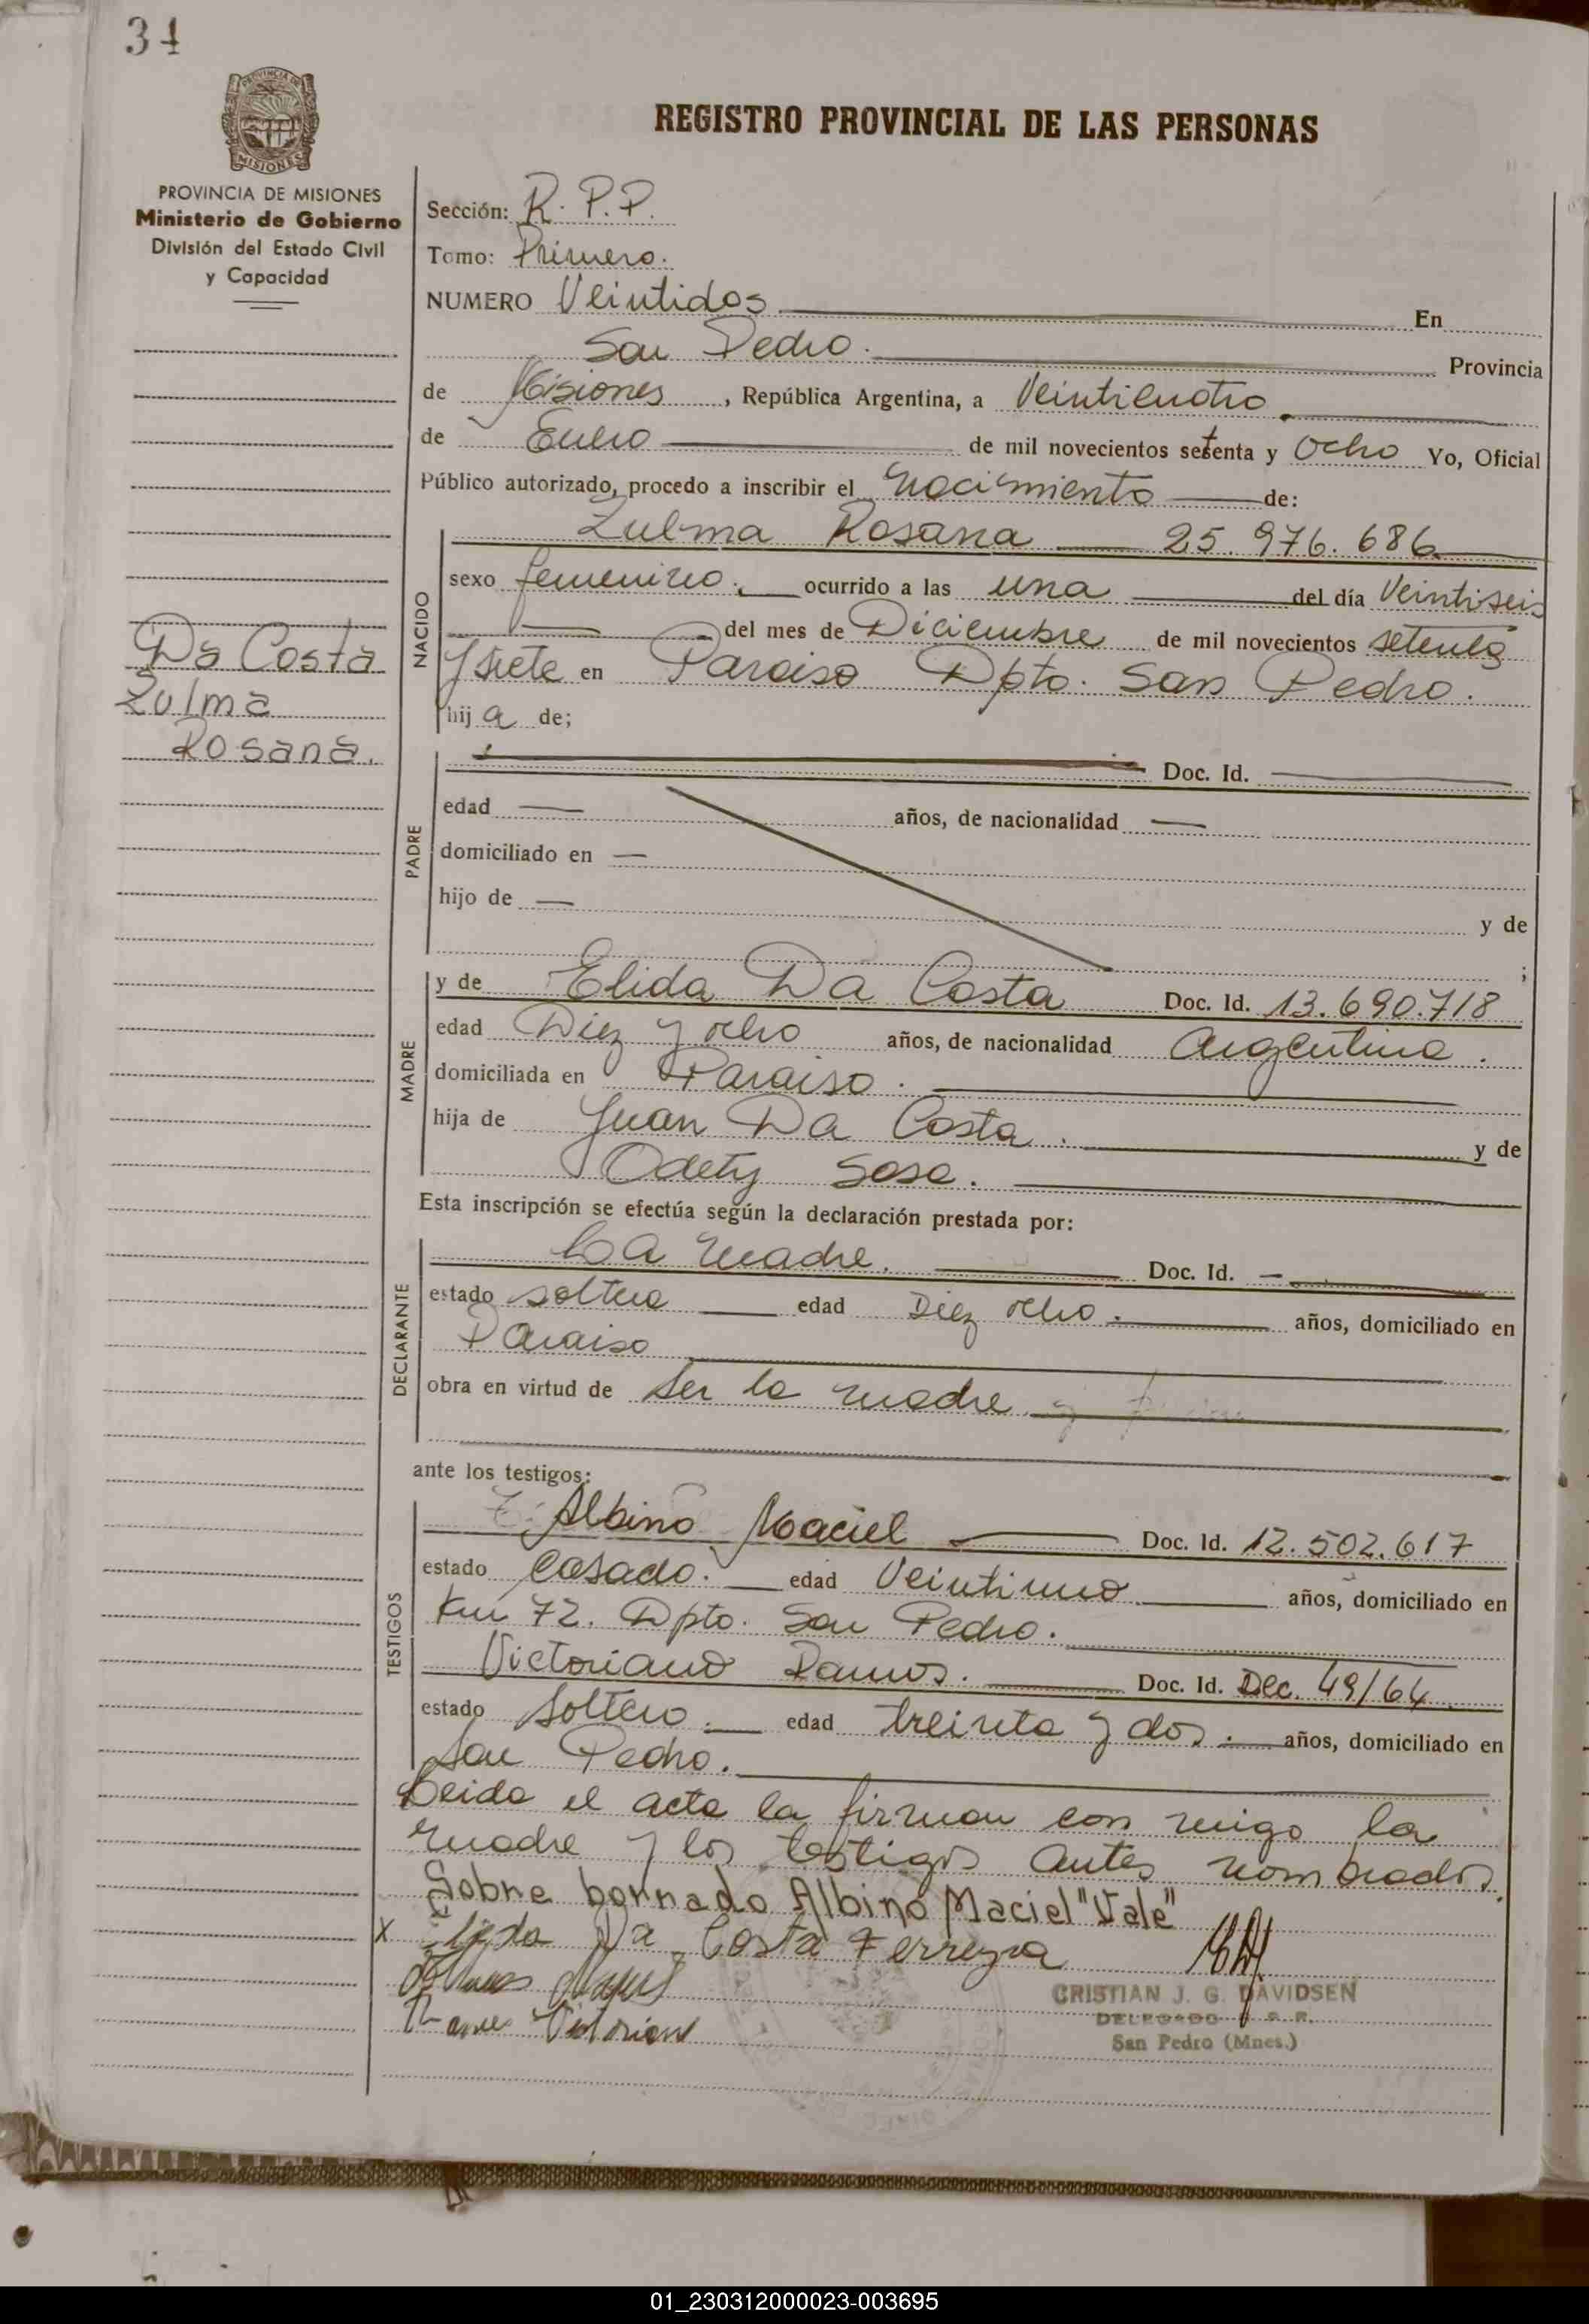 34
PROVINCIA DE MISIONES
PROVINCIA DE MISIONES
Ministerio de Gobierno
División del Estado Civil
y Capacidad
Da Costa
Zulma
Rosana.
REGISTRO PROVINCIAL DE LAS PERSONAS
Sección: R. P. P.
Tomo: Primero.
NUMERO Veintidos En
San Pedro. Provincia
de Misiones, República Argentina, a Veinticuatro
de Enero de mil novecientos setenta y Ocho Yo, Oficial
Público autorizado, procedo a inscribir el Nacimiento de:
NACIDO
Zulma Rosana 25.976.686
sexo femenino. ocurrido a las una del día Veintiseis
del mes de Diciembre de mil novecientos setenta
y siete en Paraiso Dpto. San Pedro.
hija de;
PADRE
Doc. Id.
edad años, de nacionalidad
domiciliado en
hijo de y de
;
MADRE
y de Elida Da Costa Doc. Id. 13.690.718
edad Diez y ocho años, de nacionalidad Argentina.
domiciliada en Paraiso.
hija de Juan Da Costa. y de
Odety Sosa.
Esta inscripción se efectúa según la declaración prestada por:
DECLARANTE
La Madre. Doc. Id.
estado soltera edad Diez ocho. años, domiciliado en
Paraiso
obra en virtud de Ser la madre
ante los testigos:
TESTIGOS
Albino Maciel Doc. Id. 12.502.617
estado Casado. edad Veintiuno años, domiciliado en
Km 72. Dpto. San Pedro.
Victoriano Ramos. Doc. Id. Dec. 49/64
estado Soltero. edad treinta y dos. años, domiciliado en
San Pedro.
Leida el acta la firman con migo la
madre y los testigos antes nombrados.
Sobre borrado Albino Maciel "Vale"
x Elida Da Costa Ferreyra
Victoriano
CRISTIAN J. G. DAVIDSEN
DELEGADO
San Pedro (Mnes.)
01_230312000023-003695